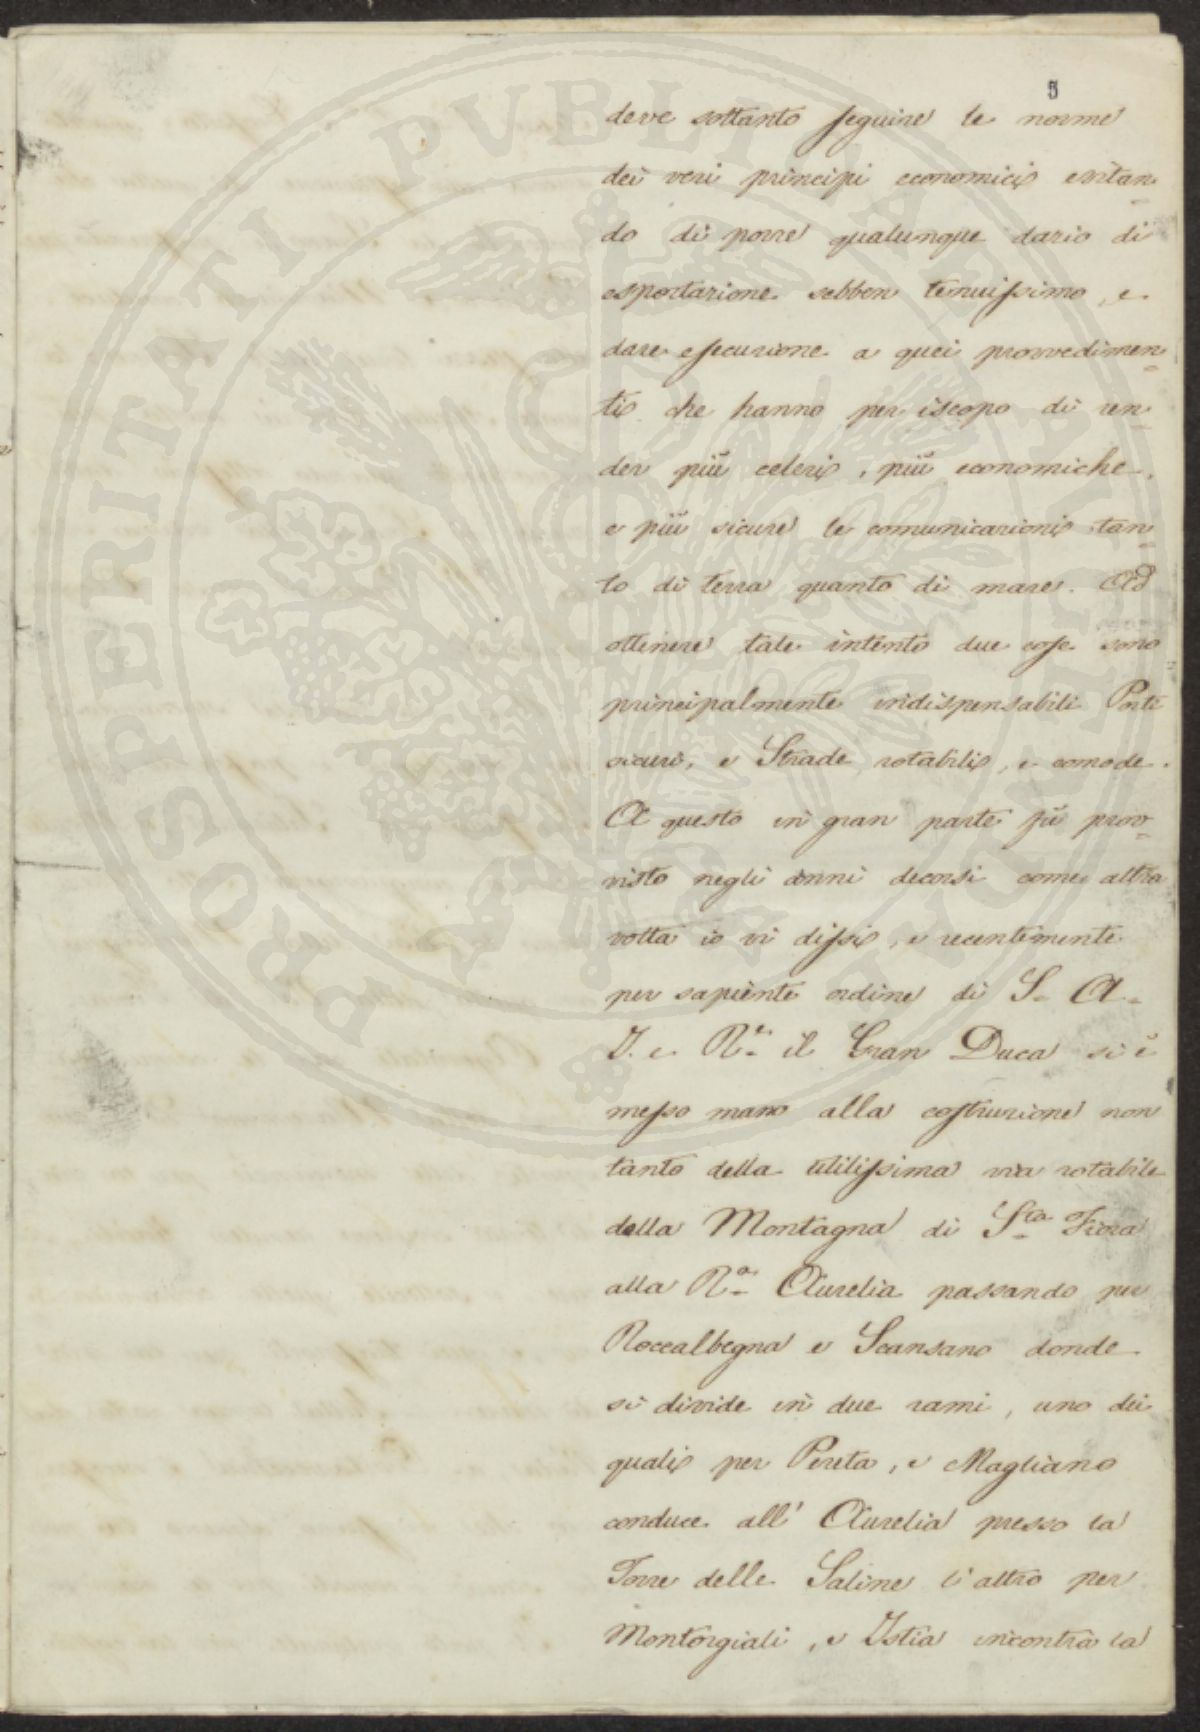 5
deve soltanto seguire le norme
dei veri principi economici evitan-
do di porre qualunque dazio di
esportazione sebben tenuissimo, e
dare esecuzione a quei provvedimen-
ti che hanno per iscopo di ren-
der più celeri, più economiche,
e più sicure le comunicazioni tan-
to di terra quanto di mare. Ad
ottenere tale intento due cose sono
principalmente indispensabili Porti
sicuri, e Strade rotabili, e comode.
A questo in gran parte fù prov-
visto negli anni decorsi come altra
volta io vi dissi, e recentemente
per sapiente ordine di S. A.
I. e R.e il Gran Duca si è
messo mano alla costruzione non
tanto della utilissima via rotabile
dalla Montagna di S.ta Fiora
alla R.a Aurelia passando per
Roccalbegna e Scansano donde
si divide in due rami, uno dei
quali per Pereta, e Magliano
conduce all' Aurelia presso la
Torre delle Saline l'altro per
Montorgiali, e Istia incontra la
PROSPERITATI PVBLICAE AVGENDAE